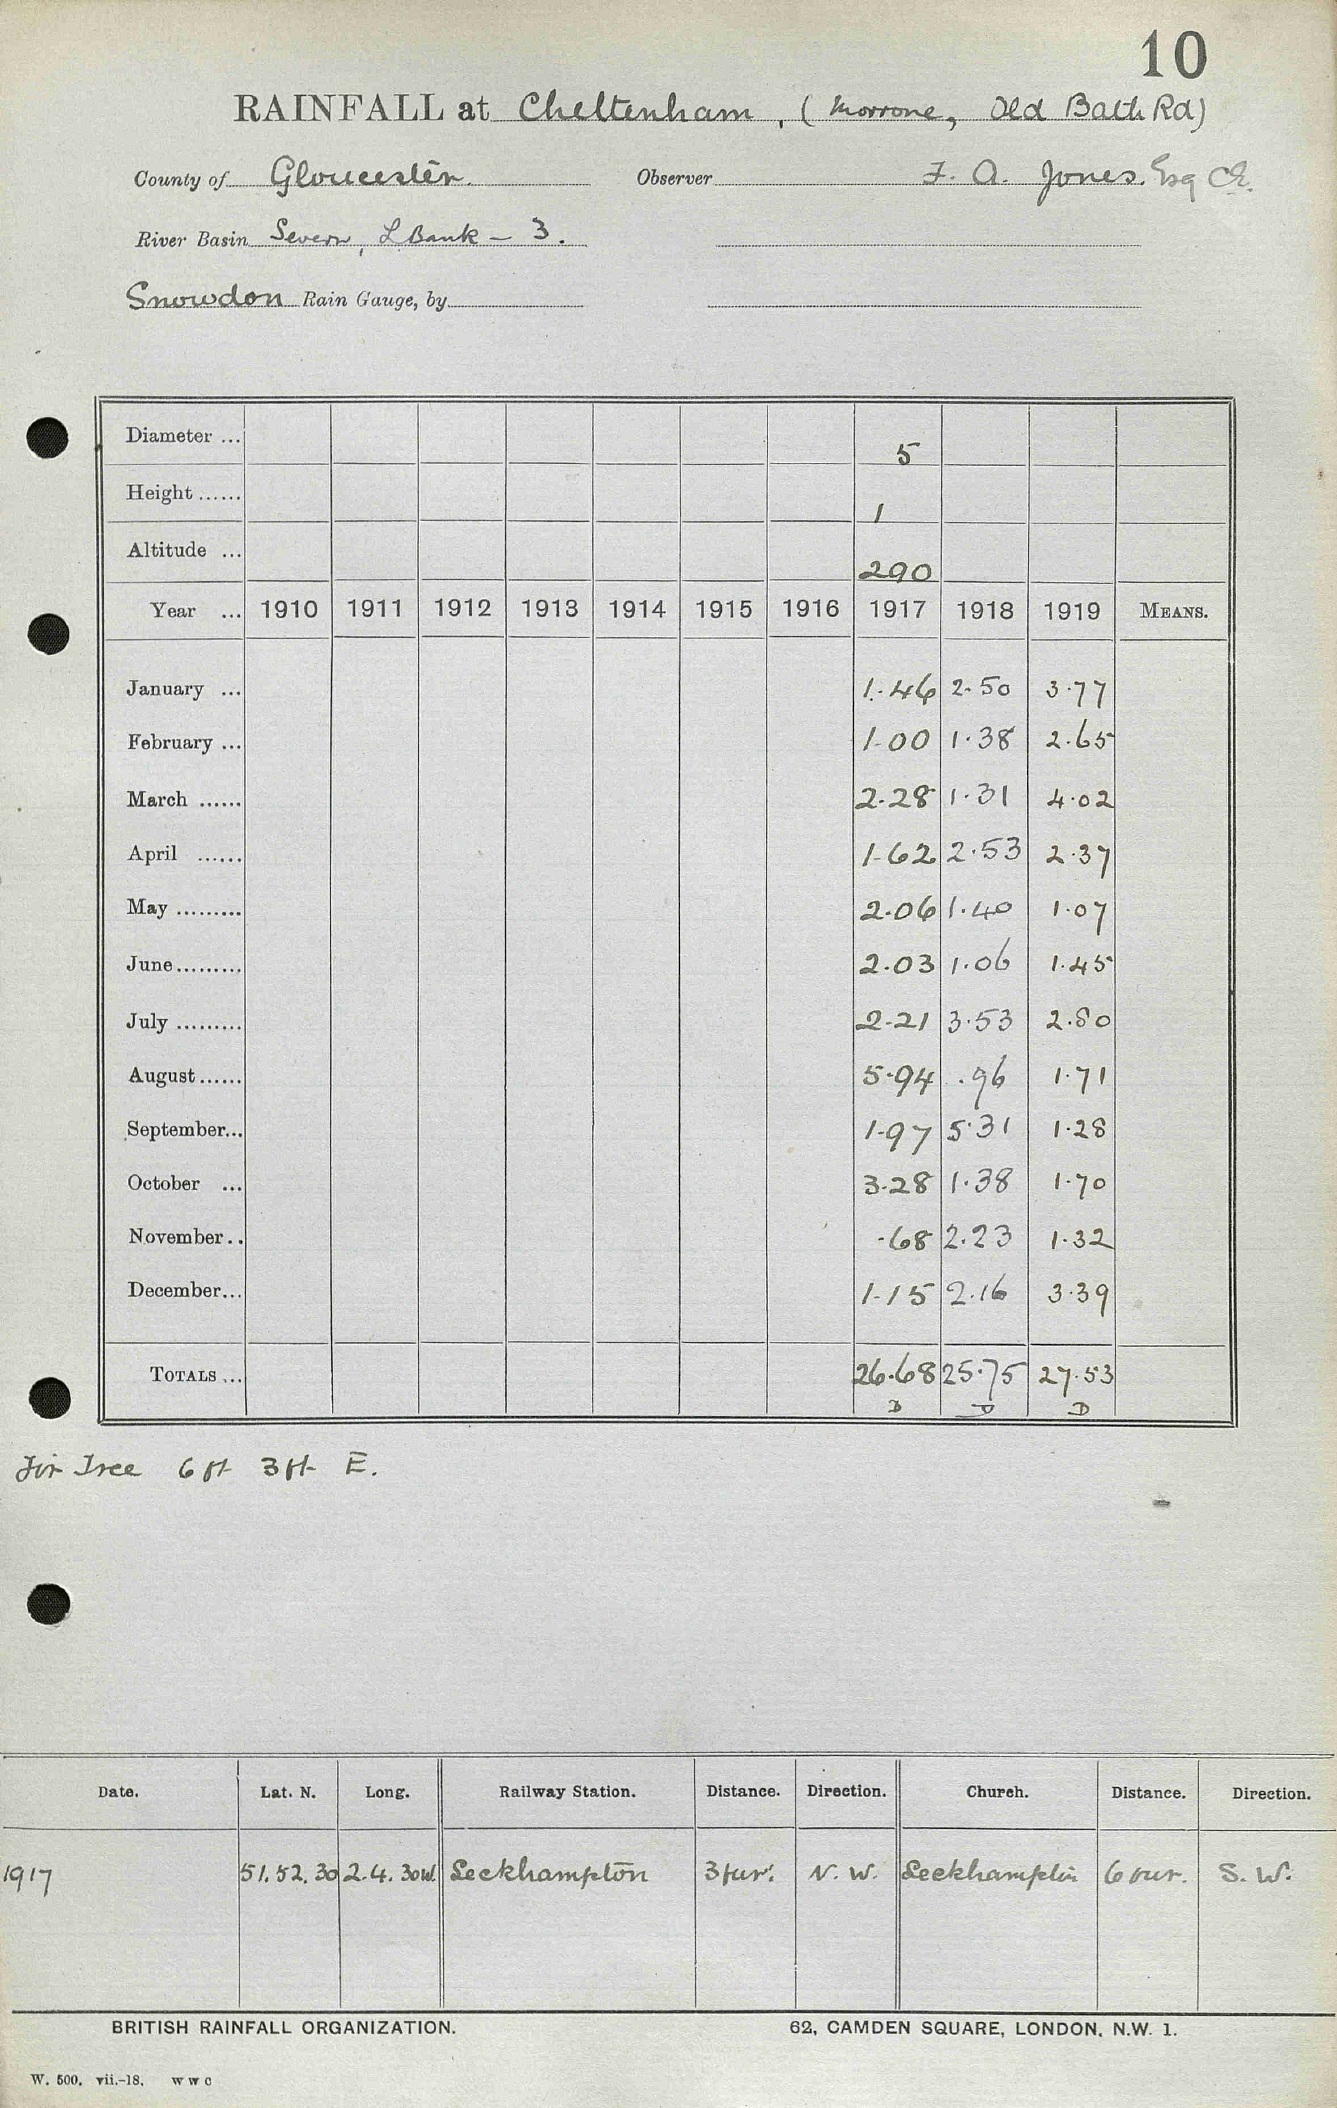 10
RAINFALL at Cheltenham, (Morrone, Old Bath Rd)
County of Gloucester. Observer F. A. Jones. Esq C.E.
River Basin Severn, L Bank - 3.
Snowdon Rain Gauge, by
Diameter ... 5
Height ...... 1
Altitude ... 290
Year ... 1910 1911 1912 1913 1914 1915 1916 1917 1918 1919 MEANS.
January ... 1.46 2.50 3.77
February ... 1.00 1.38 2.65
March ...... 2.28 1.31 4.02
April ...... 1.62 2.53 2.37
May ......... 2.06 1.40 1.07
June ......... 2.03 1.06 1.45
July ......... 2.21 3.53 2.80
August ...... 5.94 .96 1.71
September... 1.97 5.31 1.28
October ... 3.28 1.38 1.70
November .. .68 2.23 1.32
December... 1.15 2.16 3.39
TOTALS ... 26.68 25.75 27.53
D D D
Fir Tree 6 ft 3 ft E.
Date. Lat. N. Long. Railway Station. Distance. Direction. Church. Distance. Direction.
1917 51. 52. 30 2. 4. 30W. Leckhampton 3 fur. N. W. Leckhampton 6 fur. S. W.
BRITISH RAINFALL ORGANIZATION. 62, CAMDEN SQUARE, LONDON, N.W. 1.
W. 500. vii.-18. W W C